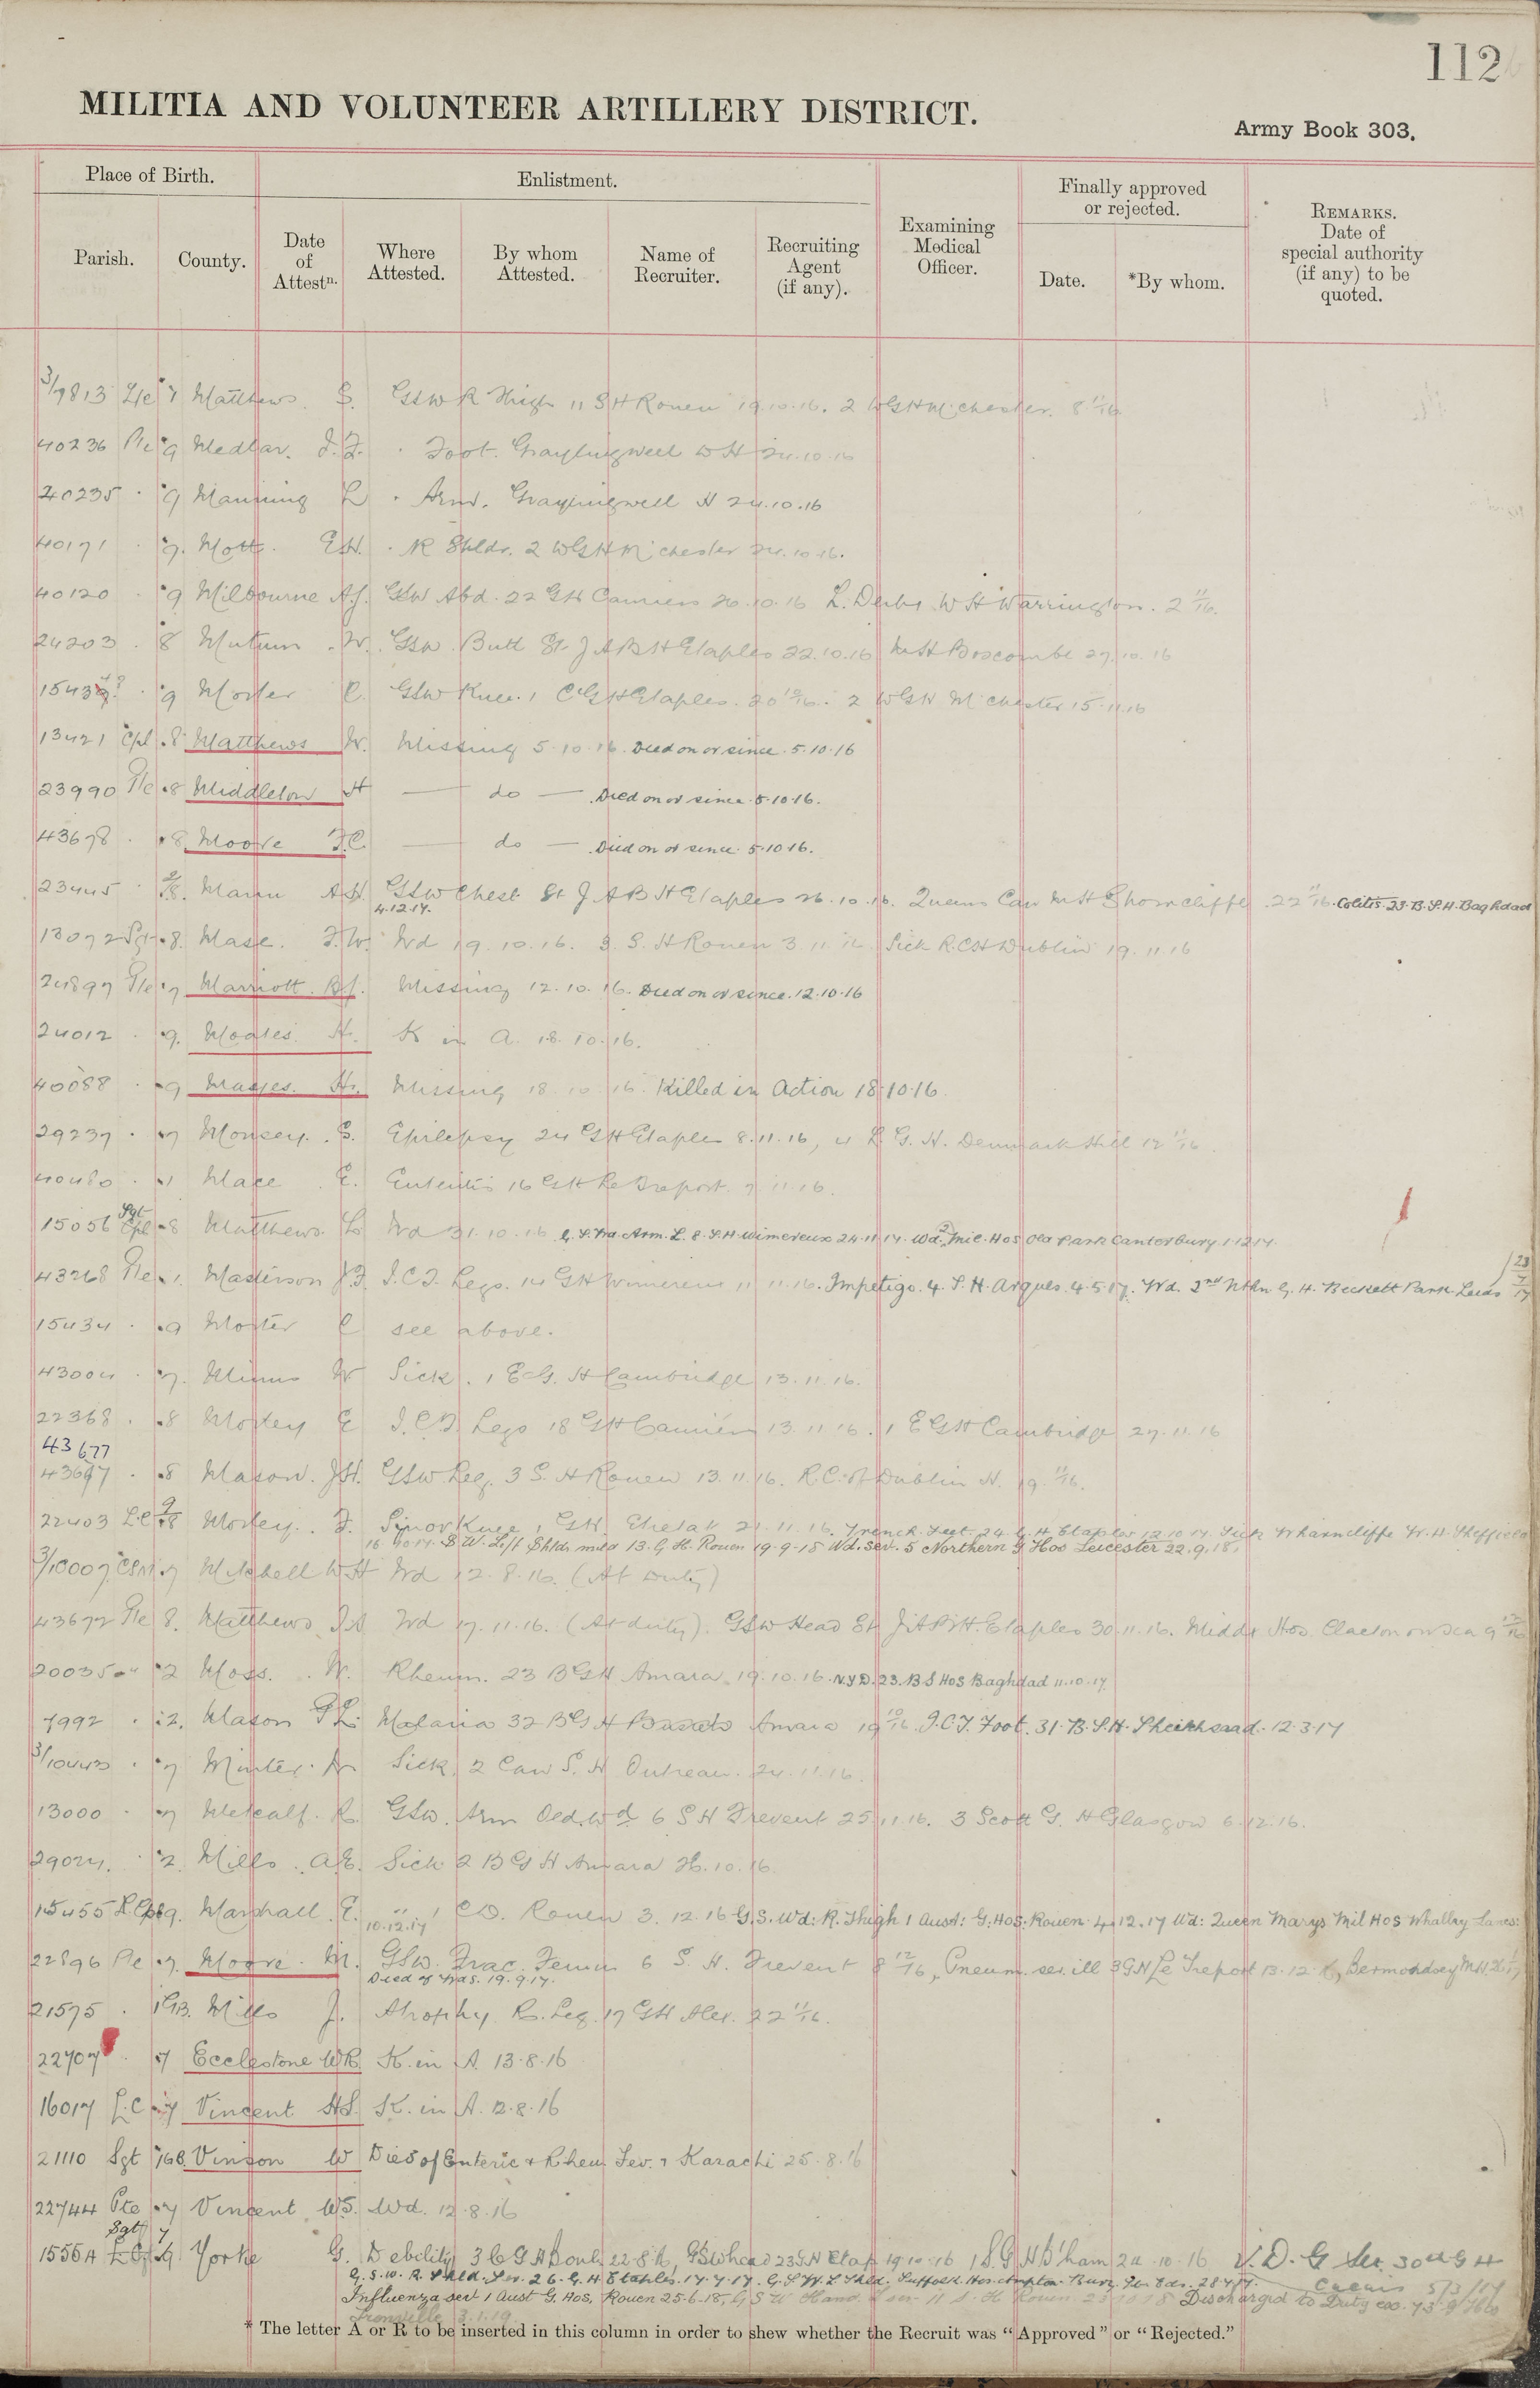 112
MILITIA AND VOLUNTEER ARTILLERY DISTRICT.
Army Book 303.
Place of Birth.
Enlistment.
Finally approved or rejected.
Parish.
County.
Date of Attestn.
Where Attested.
By whom Attested.
Name of Recruiter.
Recruiting Agent (if any).
Examining Medical Officer.
Date.
*By whom.
REMARKS. Date of special authority (if any) to be quoted.
3/9813 7 Matthews. S. GSW R Thigh 11 S H Rouen 19.10.16. 2 WGH M'chester. 8 11/16
40236 Pte 9 Medlar. J.F. . Foot. Graylingwell W H 24.10.16
40235 . 9 Manning L . Arm. Graylingwell H 24.10.16
40171 . 9. Mott. E.H. . R Shldr. 2 WGH M'chester 24.10.16.
40120 . 9 Milbourne A.J. GSW Abd. 22 GH Camiers 20.10.16 L. Derby W H Warrington. 2 11/16.
24203 . 8 Mutum . W. GSW Butt St J A B H Etaples 22.10.16 M H Boscombe 29.10.16
. 9 C. GSW Knee. 1 C G H Etaples. 20 10/16. 2 WGH M'chester 15.11.16
13421 Cpl . 8 Matthews W. Missing 5.10.16. Died on or since. 5.10.16
23990 Pte . 8 Middleton H — do — Died on or since. 5.10.16.
43678 . . 8 Moore F.C. — do — Died on or since. 5.10.16.
23445 . Mann A.H. GSW Chest St J A B H Etaples 26.10.16. Queens Can M H Shorncliffe. 22 11/16. Colitis. 23. B. S. H. Baghdad
4.12.17.
13072 Sgt . 8. Mase. F.W. Wd 19.10.16. 3. S. H Rouen 3.11.16 Sick R.C H Dublin 19.11.16
24897 Pte . 7 Marriott. B.J. Missing 12.10.16. Died on or since. 12.10.16
24012 . 9. Moates. H. K in A. 18.10.16.
40088 . 9 H. Missing 18.10.16. Killed in Action 18.10.16
29237 . 7 Mousey. S. Epilepsy 24 G H Etaples 8.11.16, 4 L. G. H. Denmark Hill 12 11/16.
. Mace . E. Enteritis 16 G H Le Treport. 7.11.16.
15056 Sgt Cpl . 8 Matthews. L Wd 31.10.16 G. S. Wd. Arm. L. 8. S. H. Wimereux 24.11.17. Wd. Mil. Hos Old Park Canterbury 1.12.17.
43268 Pte . 1. Masterson J.F. I.C.T. Legs. 14 G H Wimereux 11.11.16. Impetigo. 4. S. H. Arques. 4.5.17. Wd. 2nd Nthn G. H. Beckett Park Leeds 23/7/17
15434 . . 9 C see above.
43004 . 7. Minns W Sick. 1 E G. H Cambridge 13.11.16.
22368 . . 8 E I.C.T. Legs 18 G H Camiers 13.11.16. 1 E G H Cambridge 27.11.16
43677
43697 . . 8 Mason. J.H. GSW Leg. 3 S. H Rouen 13.11.16. R.C. H Dublin 19. 11/16.
22403 L.C Morley. . F. Knee, 1 G H Etretat 21.11.16. Trench. Feet. 24. G. H. Etaples 12.10.17. Sick Wharncliffe W. H. Sheffield
16.10.17. S W. Left Shldr mild 13. G. H. Rouen 19-9-18 Wd. Sev. 5 Northern G Hos Leicester 22.9.18.
3/10007 CSM . 7 Mitchell W.H Wd 12.8.16. (At Duty)
43672 Pte 8. Matthews, Wd 17.11.16. (At duty). GSW Head St J A B H. Etaples 30.11.16. Middx Hos. Clacton on Sea 9 12/16
20035 . 2 Moss. . W. Rheum. 23 B G H Amara. 19.10.16. N.Y.D. 23. B S Hos Baghdad 11.10.17.
7992 . . 2. Mason Malaria 32 B G H Amara 19 10/16 I.C.T. Foot. 31. B. S. H. Sheikh saad. 12.3.17
3/10443 . 7 Minter. Sick 2 Can S. H Outreau. 24.11.16.
13000 . 7 Metcalf. R. GSW. Arm Old Wd 6 S H Frevent 25.11.16. 3 Scott G. H Glasgow 6.12.16.
29024. . 2. Mills . A.E. Sick 2 B G H Amara 26.10.16.
15455 9. Marshall. E. 1 C D. Rouen 3.12.16 G. S. Wd: R. Thigh 1 Aust: G: Hos. Rouen. 4.12.17 Wd: Queen Marys Mil Hos Whalley Lancs:
10.12.17
22896 Pte . 7. Moore. M. GSW. Frac. Femur 6 S. H. Frevent 8 12/16, Pneum. ser. ill 3 G H Le Treport 13.12.16, Bermondsey M H
Died of Wds. 19.9.17.
21575 . Mills J. Atrophy. R. Leg. 17 G H Alex. 22 11/16.
22707 . 7 Ecclestone W.R. K. in A. 13.8.16
16017 L.C 7 Vincent H.S. K. in A. 12.8.16
21110 Sgt Vinson W Died of Enteric & Rheu. Fev. Karachi 25.8.16
22744 Pte 7 Vincent W.S. Wd. 12.8.16
Sgt 7
15564 9 Yorke G. Debility 3 C G H Boul. 22.8.16, GSW head 23 G.H Etap 19.10.16 1 S G H B'ham 24.10.16 V. D. G 30th G H
G. S. W. R. Shld. Sev. 26. G. H Etaples. 17.7.17. G. S W. L Shld. Suffolk. Hos. Ampton. Bury. St. Eds. 28.7.17. 5/3/17
Influenza sevl 1 Aust G. Hos. Rouen 25-6-18, G S W Hand. Discharged to Duty
3.1.19.
* The letter A or R to be inserted in this column in order to shew whether the Recruit was "Approved" or "Rejected."